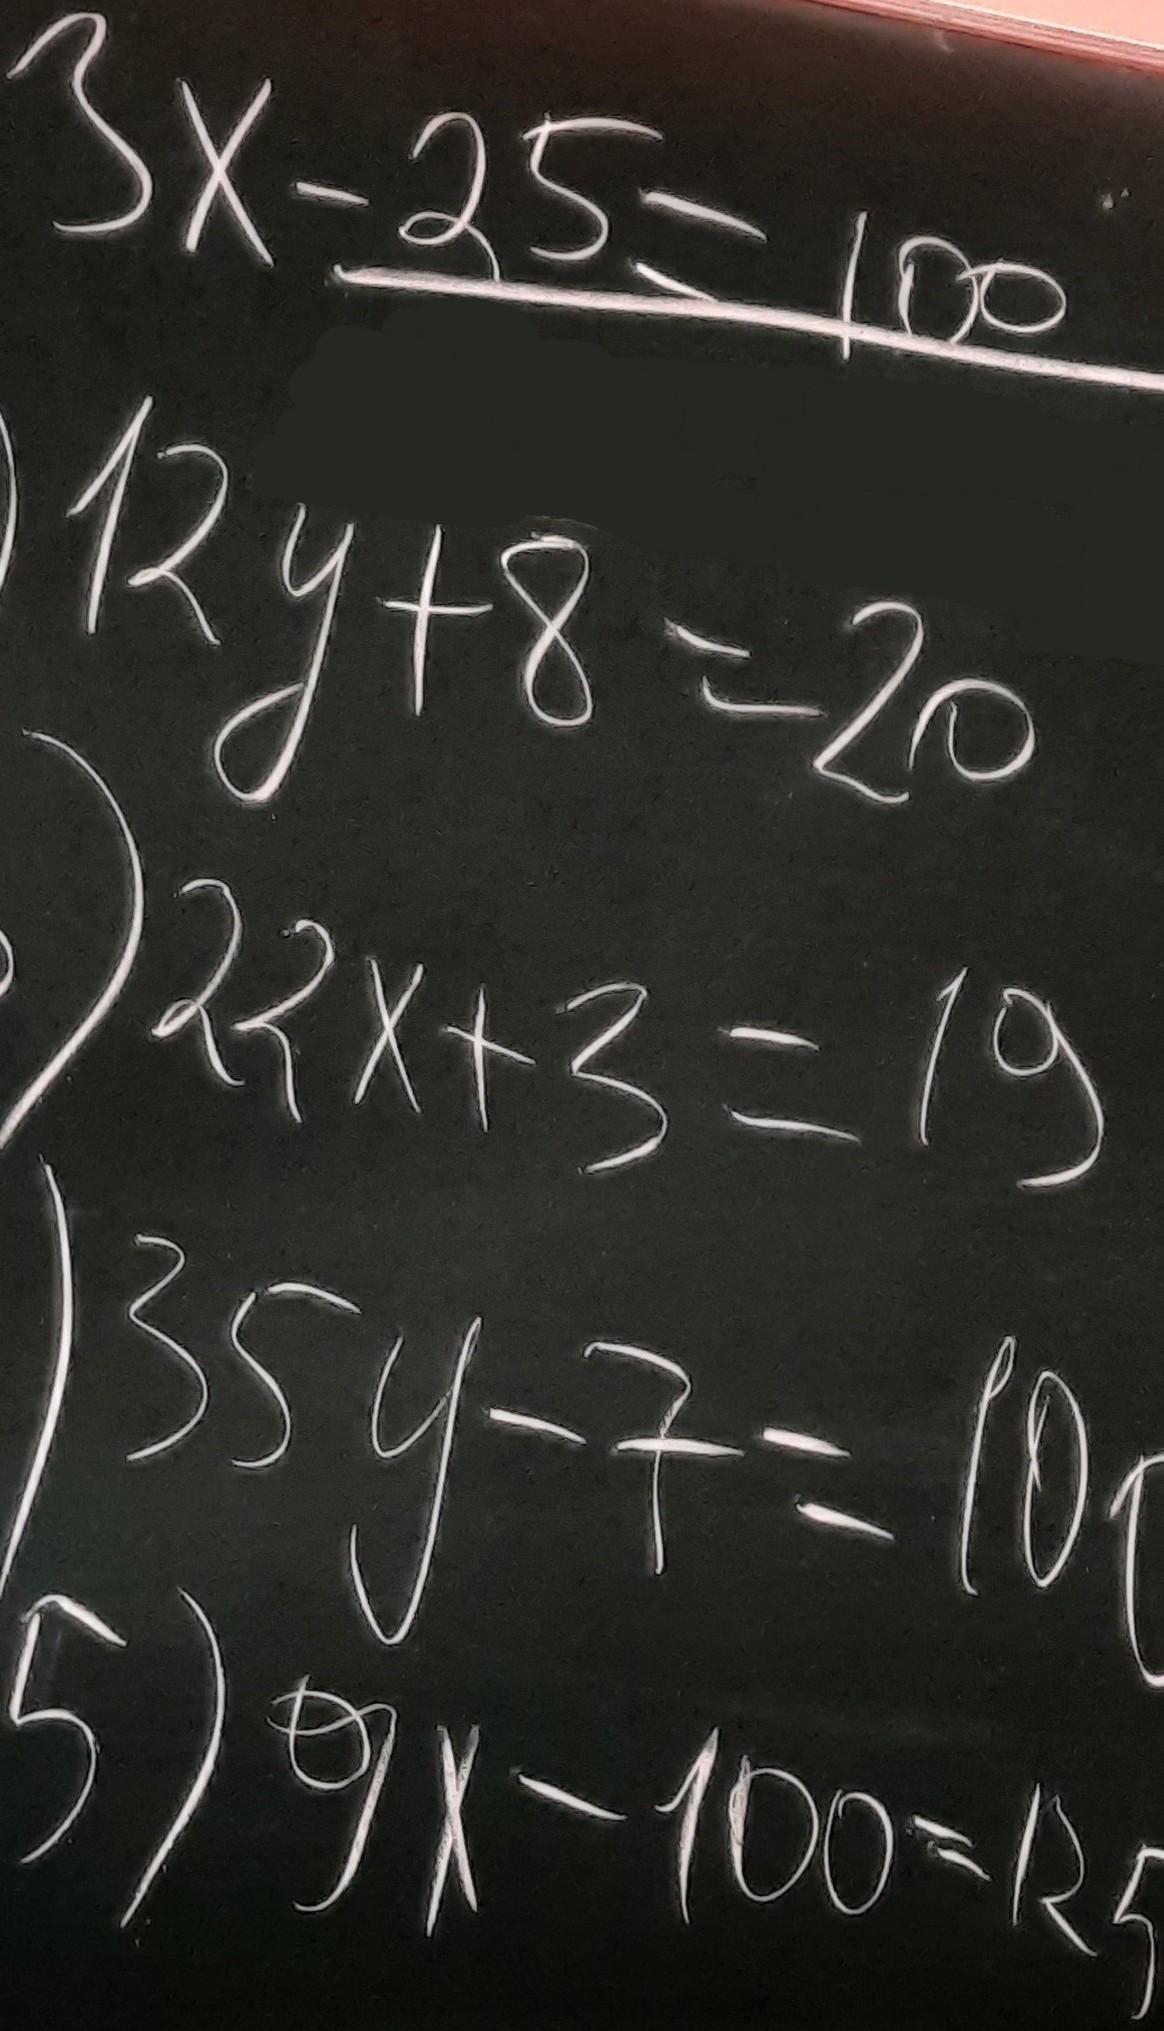 3x-25=100
)12y+8=20
)22x+3=19
)35y-7=100
5)9x-100=125